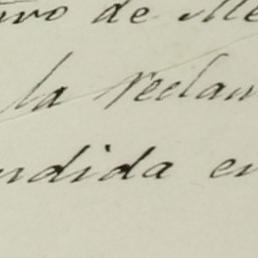 de Me
la reclam
ndida en